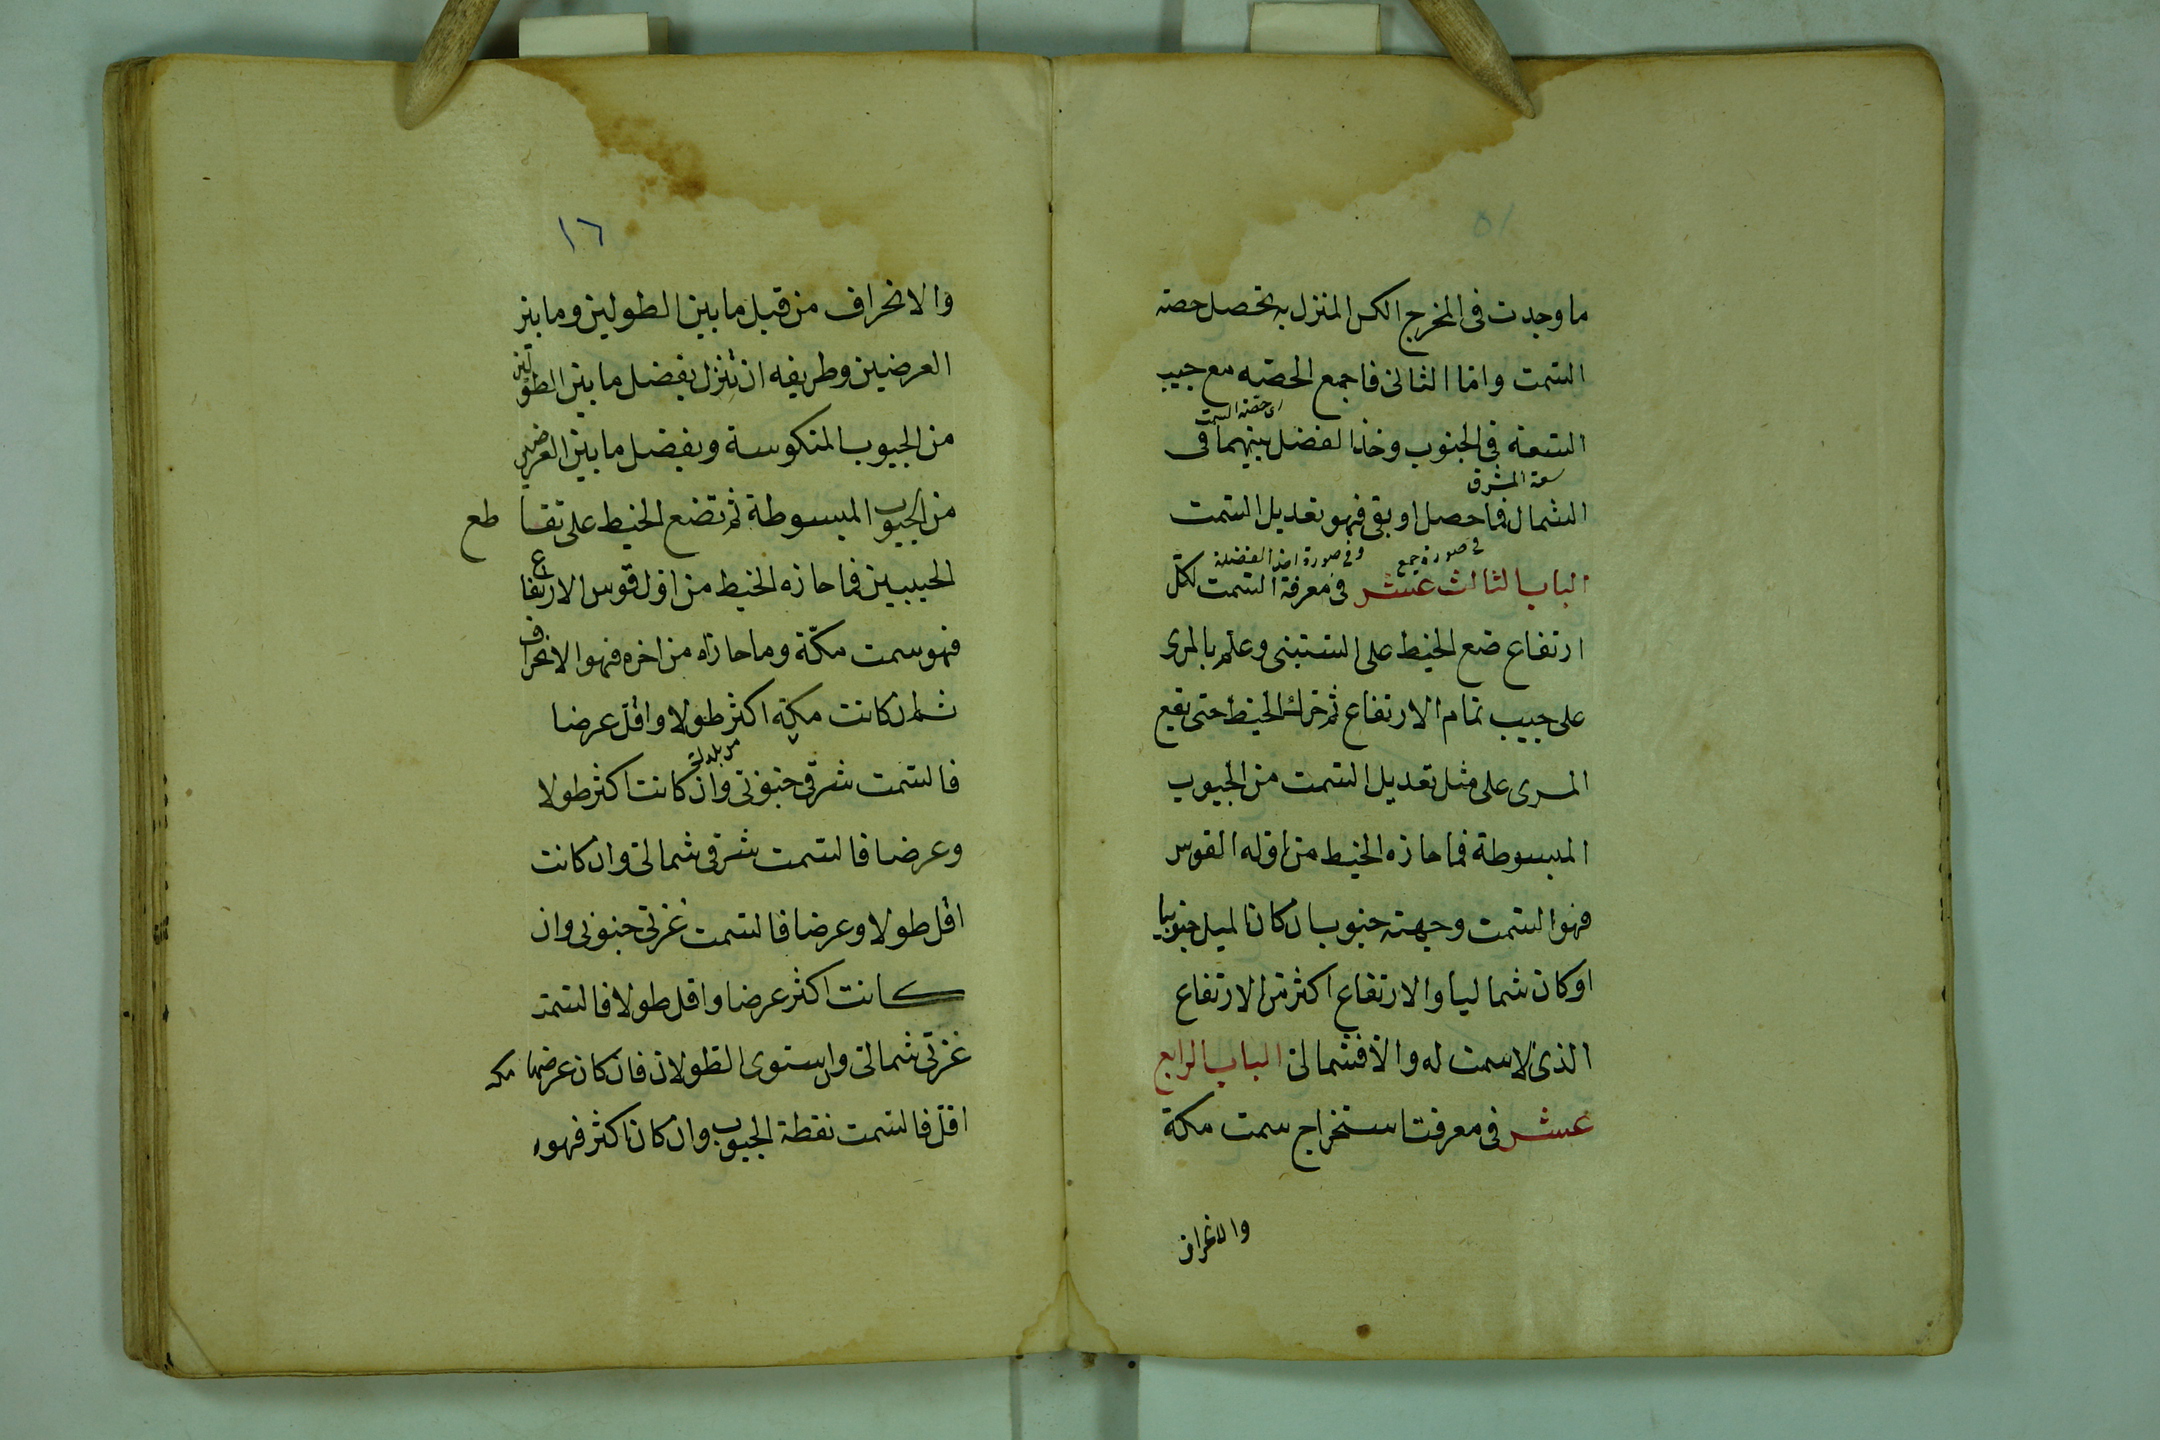 ما وجدت فى المخرج الكسر المنزل به تحصل حصته
السمت واما الثانى فاجمع الحصته مع جيب
اى حصته السمت
السعته فى الجنوب وخذ الفضل بينهما فى
سعة المشرق
الشمال فما حصل او بقى فهو تعديل السمت
فى صورة جمع وفى صورة اخذ الفضلة
الباب الثالث عشر فى معرفة السمت لكل
ارتفاع ضع الخيط على الستينى وعلم بالمرى
على جيب تمام الارتفاع ثم حرك الخيط حتى يقع
المرى على مثل تعديل السمت من الجيوب
المبسوطة فما حازه الخيط من اوله القوس
فهو السمت وجهته جنوب ان كان الميل جنوبيا
او كان شماليا والارتفاع اكثر من الارتفاع
الذى لا سمت له والا فشمالى الباب الرابع
عشر فى معرفت استخراج سمت مكة
والانحراف
١٦
والانحراف من قبل ما بين الطولين وما بين
العرضين وطريقه ان تنزل بفضل ما بين الطولين
من الجيوب المنكوسة وبفضل ما بين العرضين
من الجيوب المبسوطة ثم تضع الخيط على تقاطع
الجيبين فما حازه الخيط من اول قوس الارتفاع
فهو سمت مكة وما حازاه من اخره فهو الانحراف
ثم ان كانت مكة اكثر طولا واقل عرضا
من بلدك
فالسمت شرقى جنوبى وان كانت اكثر طولا
وعرضا فالسمت شرقى شمالى وان كانت
اقل طولا وعرضا فالسمت غربى جنوبى وان
كانت اكثر عرضا واقل طولا فالسمت
غربى شمالى وان ستوى الطولان فان كان عرضها مكه
اقل فالسمت نقطة الجيوب وان كان اكثر فهو